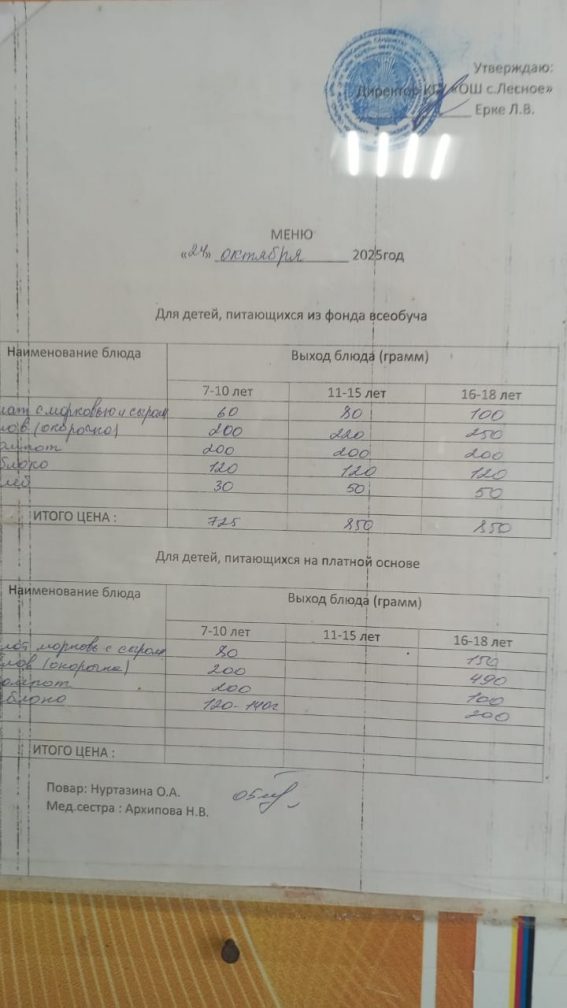 Утверждаю:
Директор КГУ «ОШ с.Лесное»
Ерке Л.В.
МЕНЮ
«24» октября 2025год
Для детей, питающихся из фонда всеобуча
Наименование блюда Выход блюда (грамм)
7-10 лет 11-15 лет 16-18 лет
лат с морковью и сыром 60 80 100
лов (окорочка) 200 220 250
омпот 200 200 200
блоко 120 120 120
леб 30 50 50
ИТОГО ЦЕНА : 725 850 850
Для детей, питающихся на платной основе
Наименование блюда Выход блюда (грамм)
7-10 лет 11-15 лет 16-18 лет
лат морковь с сыром 80 150
лов (окорочка) 200 490
омпот 200 100
блоко 120-140г 200
ИТОГО ЦЕНА :
Повар: Нуртазина О.А.
Мед.сестра : Архипова Н.В.